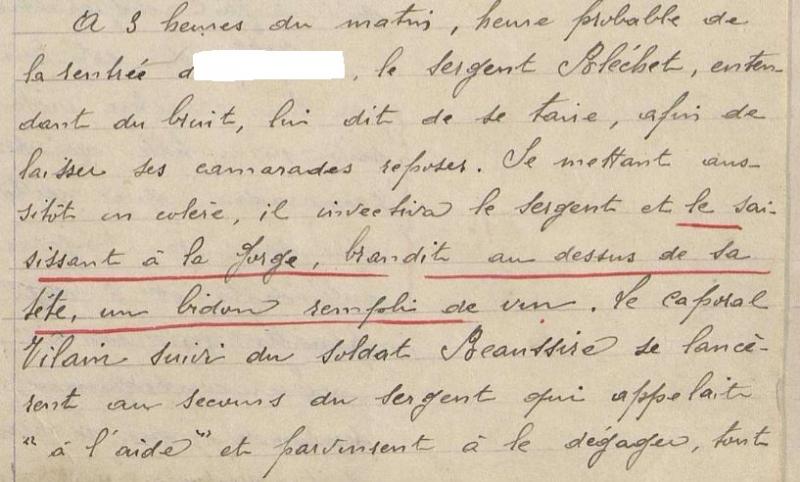 A 3 heures du matin, heure probable de
la rentrée d , le sergent Bléchet, enten-
dant du bruit, lui dit de se taire, afin de
laisser ses camarades reposer. Se mettant aus-
sitôt en colère, il invectiva le sergent et le sai-
sissant à la gorge, brandit au dessus de sa
tête, un bidon rempli de vin. Le caporal
Vilain suivi du soldat Beaussire se lancè-
rent au secours du sergent qui appelait
"à l'aide" et parvinrent à le dégager, tout